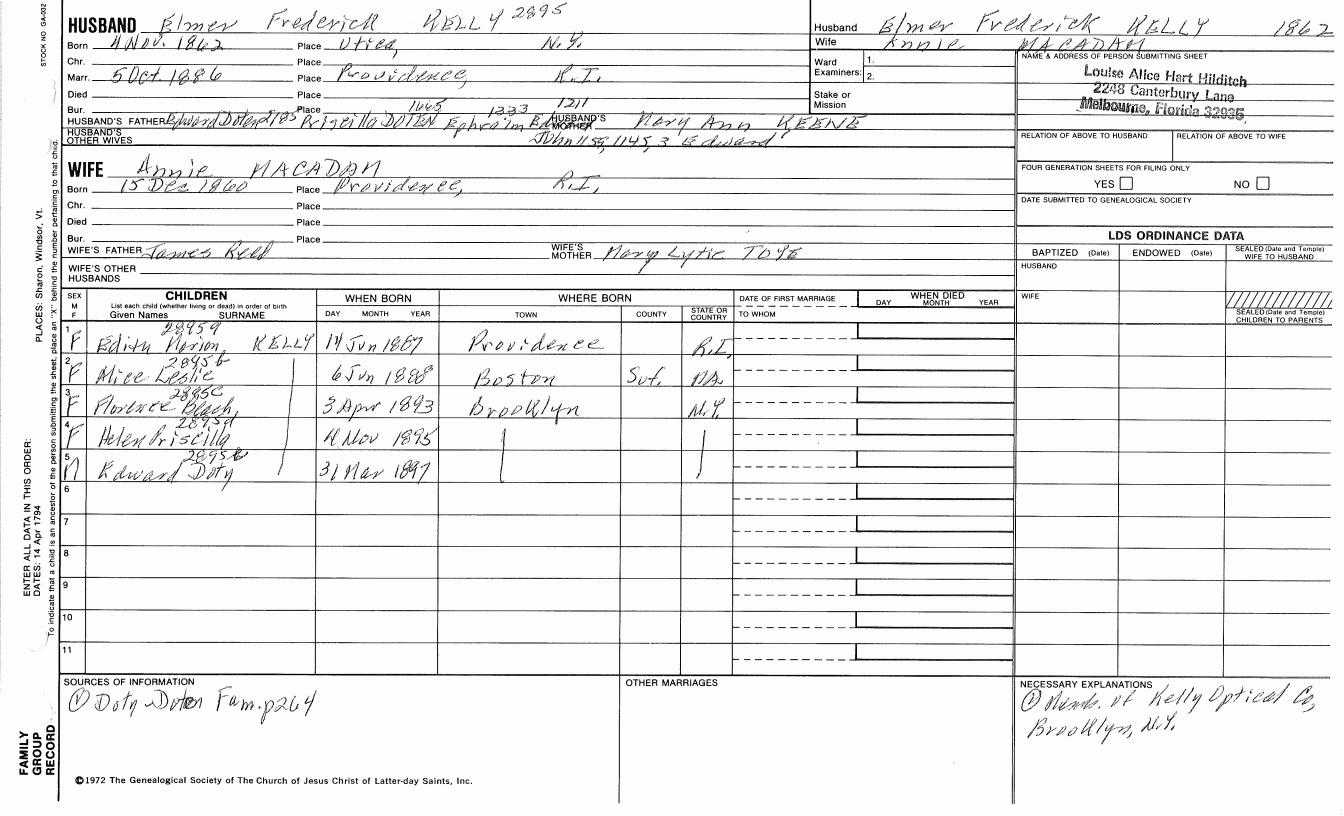 STOCK NO GA-002
HUSBAND Elmer Frederick KELLY 2895
Born 4 Nov. 1862 Place Utica, N.Y.
Chr. Place
Marr. 5 Oct. 1886 Place Providence, R.I.
Died Place
Bur. Place 1665 1233 1211
HUSBAND'S FATHER Edward Doten 2185 Priscilla DOTEN Ephraim HUSBAND'S MOTHER Mary Ann KEENE
HUSBAND'S OTHER WIVES John 1159, 1145, 3 Edward
WIFE Annie MACADAM
Born 15 Dec 1860 Place Providence, R.I.
Chr. Place
Died Place
Bur. Place
WIFE'S FATHER James Reed WIFE'S MOTHER Mary Lytie TOYE
WIFE'S OTHER HUSBANDS
Husband Elmer Frederick KELLY 1862
Wife Annie MACADAM
Ward Examiners: 1. 2.
Stake or Mission
NAME & ADDRESS OF PERSON SUBMITTING SHEET
Louise Alice Hart Hilditch
2248 Canterbury Lane
Melbourne, Florida 32935
RELATION OF ABOVE TO HUSBAND RELATION OF ABOVE TO WIFE
FOUR GENERATION SHEETS FOR FILING ONLY
YES NO
DATE SUBMITTED TO GENEALOGICAL SOCIETY
LDS ORDINANCE DATA
BAPTIZED (Date) ENDOWED (Date) SEALED (Date and Temple) WIFE TO HUSBAND
HUSBAND
WIFE
SEALED (Date and Temple) CHILDREN TO PARENTS
SEX M F CHILDREN List each child (whether living or dead) in order of birth Given Names SURNAME
WHEN BORN DAY MONTH YEAR
WHERE BORN TOWN COUNTY STATE OR COUNTRY
DATE OF FIRST MARRIAGE TO WHOM
WHEN DIED DAY MONTH YEAR
1 F 2895a Edith Marion KELLY 14 Jun 1887 Providence R.I.
2 F 2895b Alice Leslie 6 Jun 1888 Boston Suf. MA.
3 F 2895c Florence Beach, 3 Apr 1893 Brooklyn N.Y.
4 F 2895d Helen Priscilla 4 Nov 1895
5 M 2895e Edward Doty 31 Mar 1897
6
7
8
9
10
11
SOURCES OF INFORMATION
① Doty-Doten Fam. p264
OTHER MARRIAGES
NECESSARY EXPLANATIONS
① Memb. of Kelly Optical Co,
Brooklyn, N.Y.
©1972 The Genealogical Society of The Church of Jesus Christ of Latter-day Saints, Inc.
FAMILY GROUP RECORD
ENTER ALL DATA IN THIS ORDER:
DATES: 14 Apr 1794
PLACES: Sharon, Windsor, Vt.
To indicate that a child is an ancestor of the person submitting the sheet, place an "X" behind the number pertaining to that child.